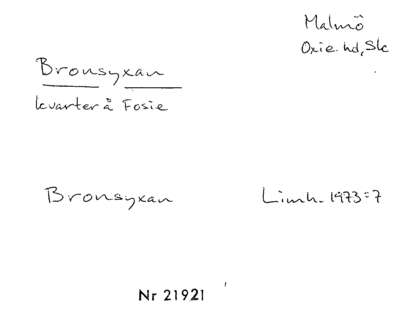 Malmö
Oxie hd, Sk
Bronsyxan
kvarter å Fosie
Bronsyxan Limh. 1973:7
Nr 21921